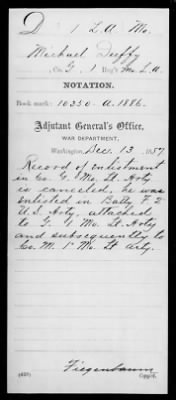 D | 1 | L.A. | Mo.
Michael Duffy
Co. G, 1 Reg't Mo. L.A.
NOTATION.
Book mark: 10350-A-1886.
Adjutant General's Office,
WAR DEPARTMENT,
Washington, Dec. 13, 1887.
Record of enlistment
in Co. G. 1 Mo. Lt. Arty
is canceled, he was
enlisted in Batty F. 2
U.S. Arty, attached
to G. 1 Mo. Lt. Arty
and subsequently to
Co. M. 1" Mo. Lt Arty.
Fiegenbaum
Copyist.